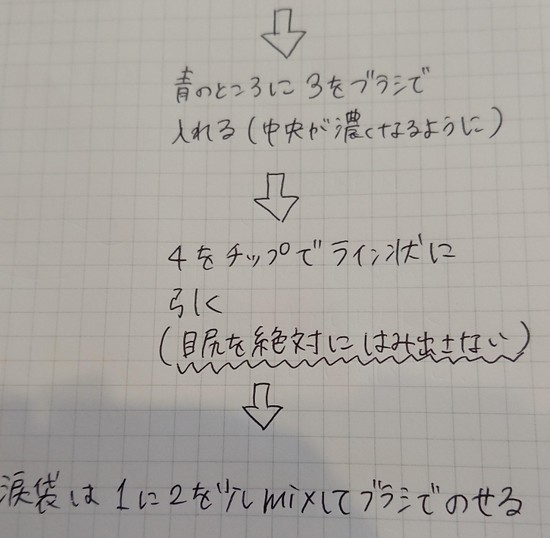 青のところに3をブラシで
入れる(中央が濃くなるように)
4をチップでライン状に
引く
(目尻を絶対にはみ出さない)
涙袋は1に2を少しmixしてブラシでのせる